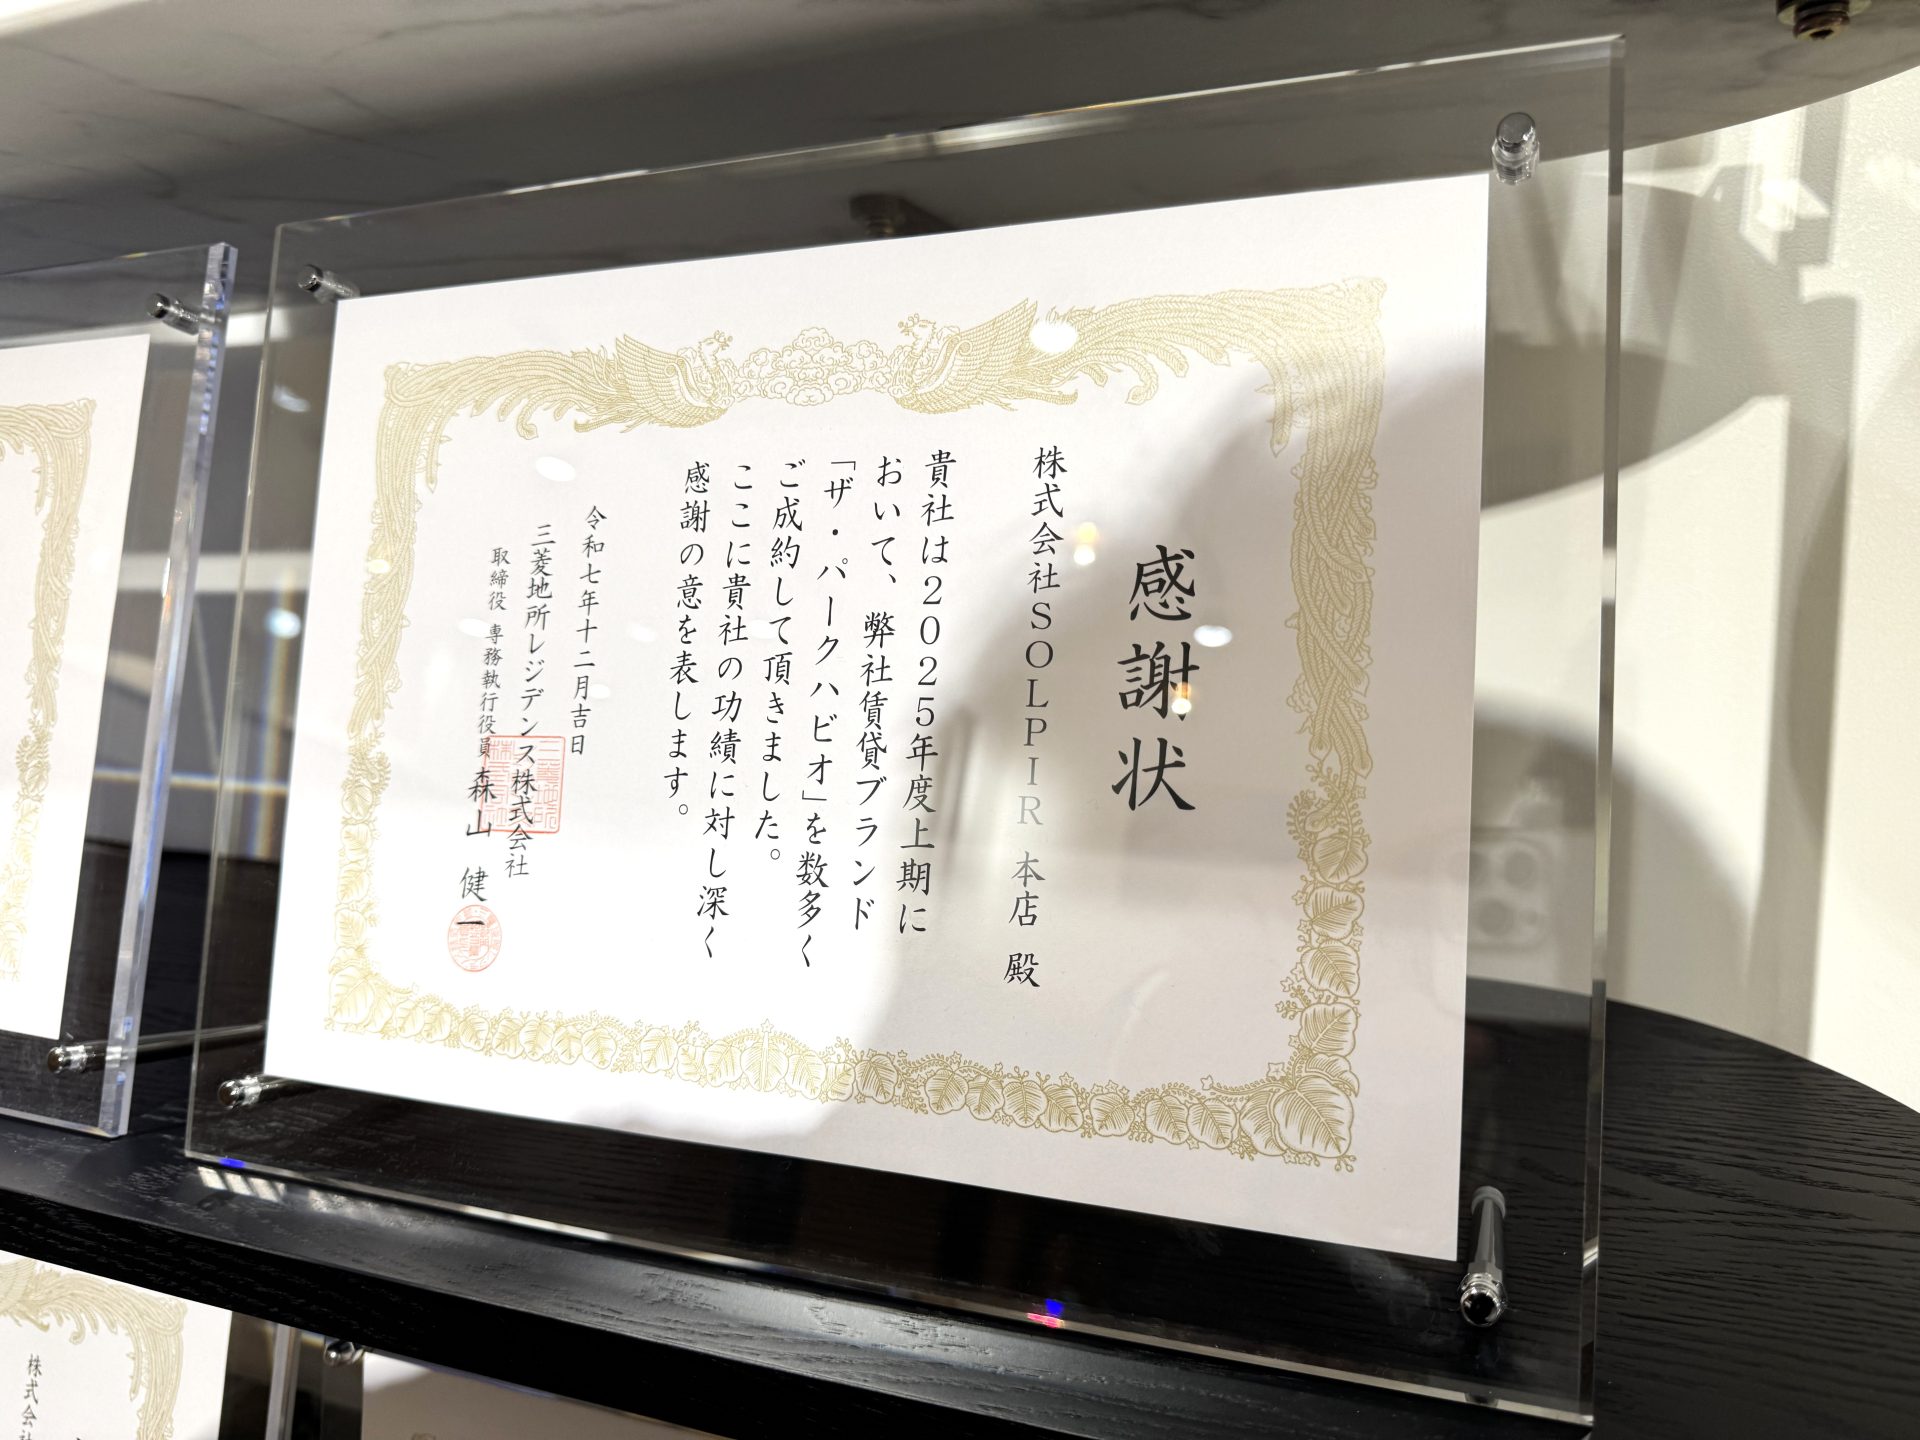 感謝状
株式会社SOLPIR 本店 殿
貴社は2025年度上期に
おいて、弊社賃貸ブランド
「ザ・パークハビオ」を数多く
ご成約して頂きました。
ここに貴社の功績に対し深く
感謝の意を表します。
令和七年十二月吉日
三菱地所レジデンス株式会社
取締役 専務執行役員 森山 健一
株式会社